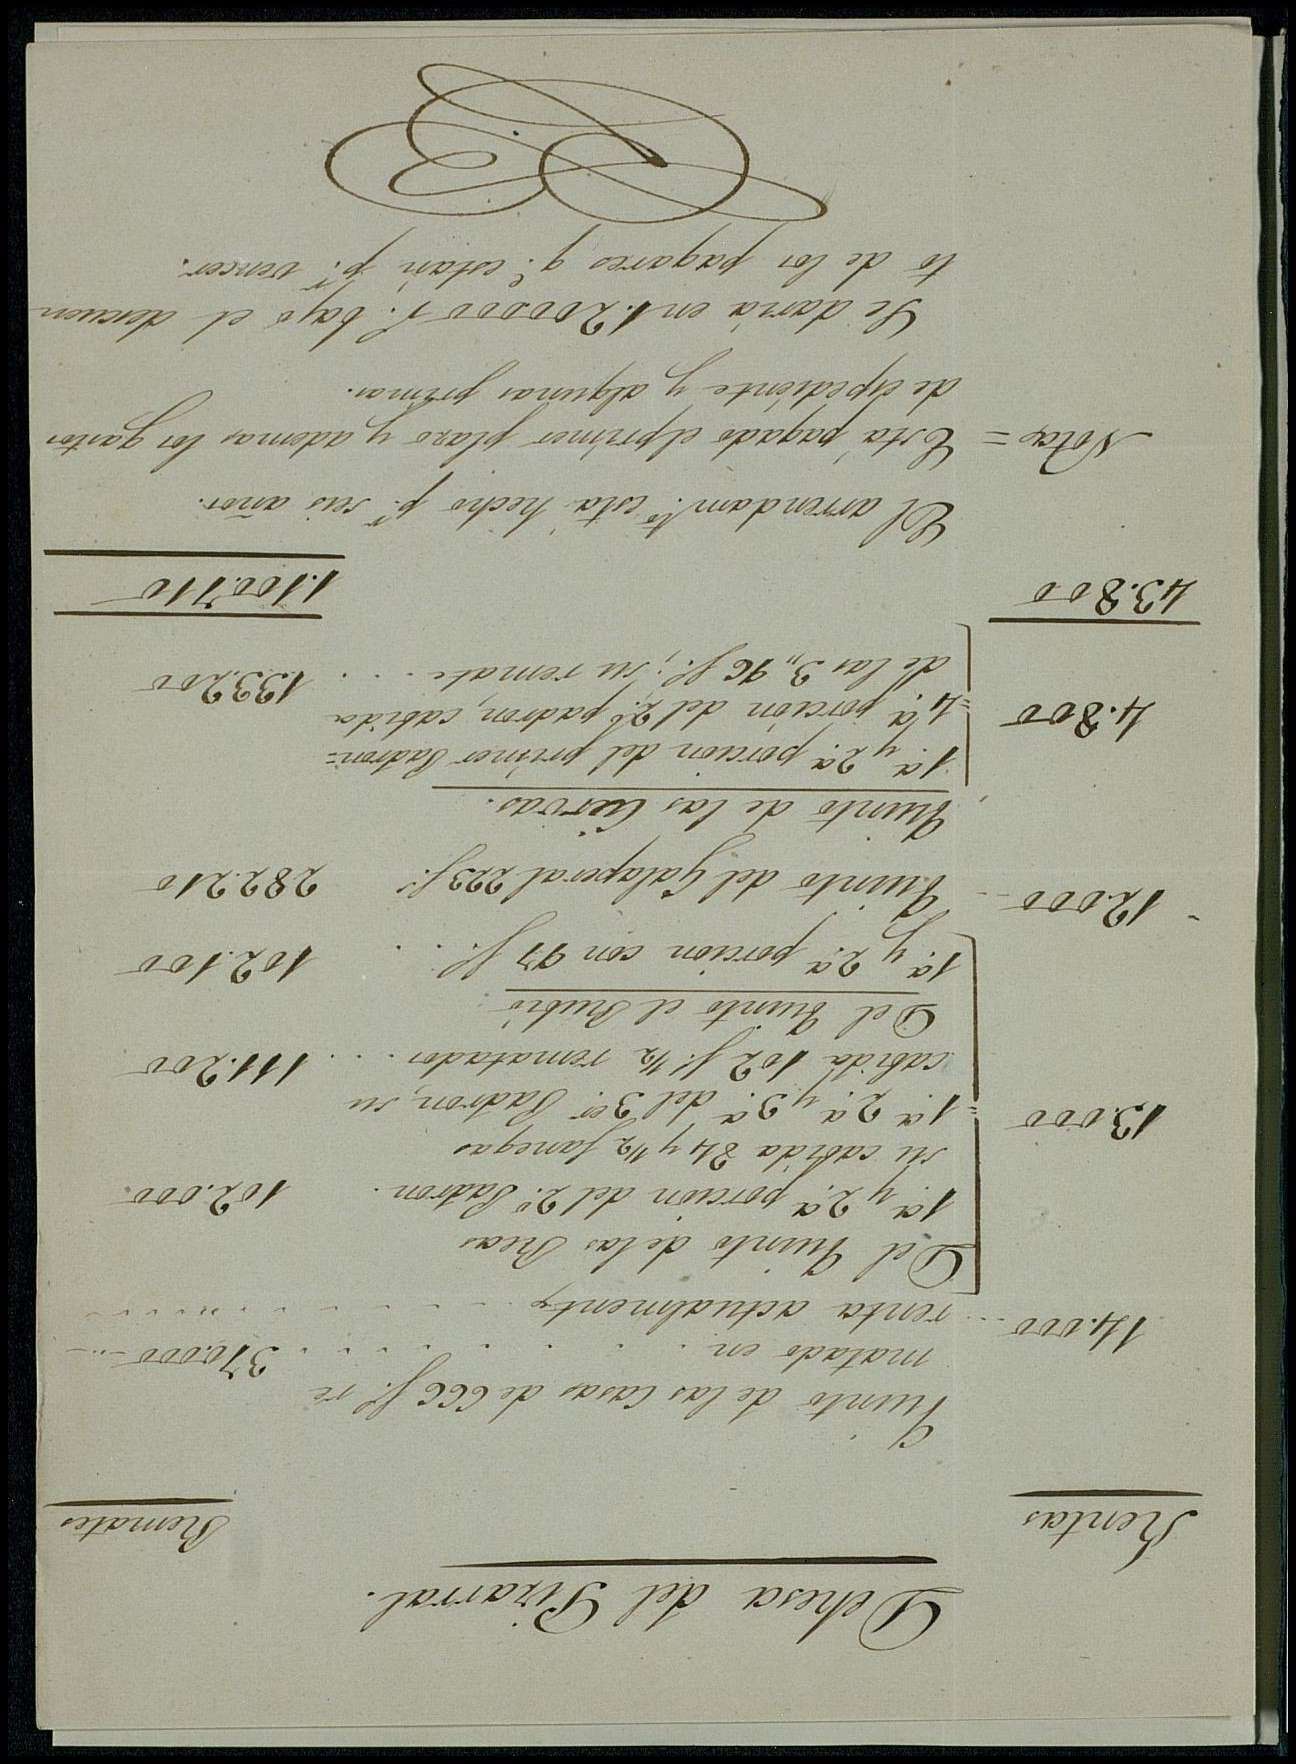 Dehesa del Pizarral.
Rentas Remates
Quinto de las Casas de 666 f.s re
matado en . . . . . . . . 370.000
14.000 renta actualmente
Del Quinto de las
1.a y 2.a porcion del 2.o Padron. 102.000
su cabida 84 y 1/2 fanegas
13.000 = 1.a 2.a y 3.a del 3.er Padron, su
cabida 102 f.s 1/2 rematados . . . . 111.200
Del Quinto el Rubio
1.a y 2.a porcion con 97 f.s . . . 102.100
12.000 Quinto del Galaperal 223 f.s 282.210
Quinto de las Ciervas.
1.a y 2.a porcion del primer Padron=
4.800 = 4.a porcion del 2.o padron, cabida
de las 3,, 96 f.s, su remate . . . . 133.200
43.800 1.100.710
El arrendam.to está hecho p.r seis años.
Notas = Está pagado el primer plazo y ademas los gastos
de expediente y algunas primas.
Se daria en 1.200.000 r.s bajo el descuen
to de los pagares q.e estan p.r vencer.